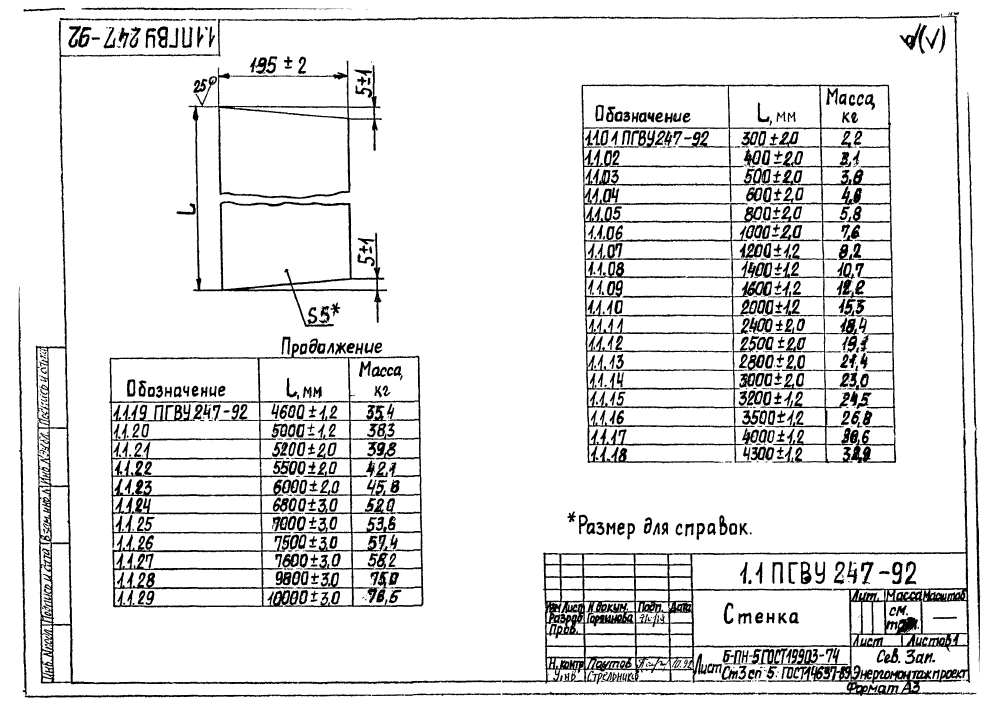 1.1 ПГВУ 247-92
√(√)
195 ± 2
25
5±1
L
5±1
S5*
Обозначение L, мм Масса, кг
1.1.01 ПГВУ247-92 300±2,0 2,2
1.1.02 400±2,0 3,1
1.1.03 500±2,0 3,8
1.1.04 600±2,0 4,6
1.1.05 800±2,0 5,8
1.1.06 1000±2,0 7,6
1.1.07 1200±1,2 9,2
1.1.08 1400±1,2 10,7
1.1.09 1600±1,2 12,2
1.1.10 2000±1,2 15,3
1.1.11 2400±2,0 18,4
1.1.12 2500±2,0 19,1
1.1.13 2800±2,0 21,4
1.1.14 3000±2,0 23,0
1.1.15 3200±1,2 24,5
1.1.16 3500±1,2 26,8
1.1.17 4000±1,2 30,6
1.1.18 4300±1,2 32,9
Продолжение
Обозначение L, мм Масса, кг
1.1.19 ПГВУ247-92 4600±1,2 35,4
1.1.20 5000±1,2 38,3
1.1.21 5200±2,0 39,8
1.1.22 5500±2,0 42,1
1.1.23 6000±2,0 45,8
1.1.24 6800±3,0 52,0
1.1.25 7000±3,0 53,6
1.1.26 7500±3,0 57,4
1.1.27 7600±3,0 58,2
1.1.28 9800±3,0 75,0
1.1.29 10000±3,0 76,5
*Размер для справок.
1.1 ПГВУ 247-92
Изм Лист N докум. Подп. Дата
Разраб Горяинова
Пров.
Н. контр Паутов 10.92
Утв Стрельников
Стенка
Лит. Масса Масштаб
см. табл. —
Лист Листов 1
Лист Б-ПН-5 ГОСТ 19903-74
Ст3 сп 5 ГОСТ 14637-89
Сев. Зап.
Энергомонтажпроект
Формат А3
Инв. N подл. Подпись и дата Взам. инв. N Инв. N дубл. Подпись и дата